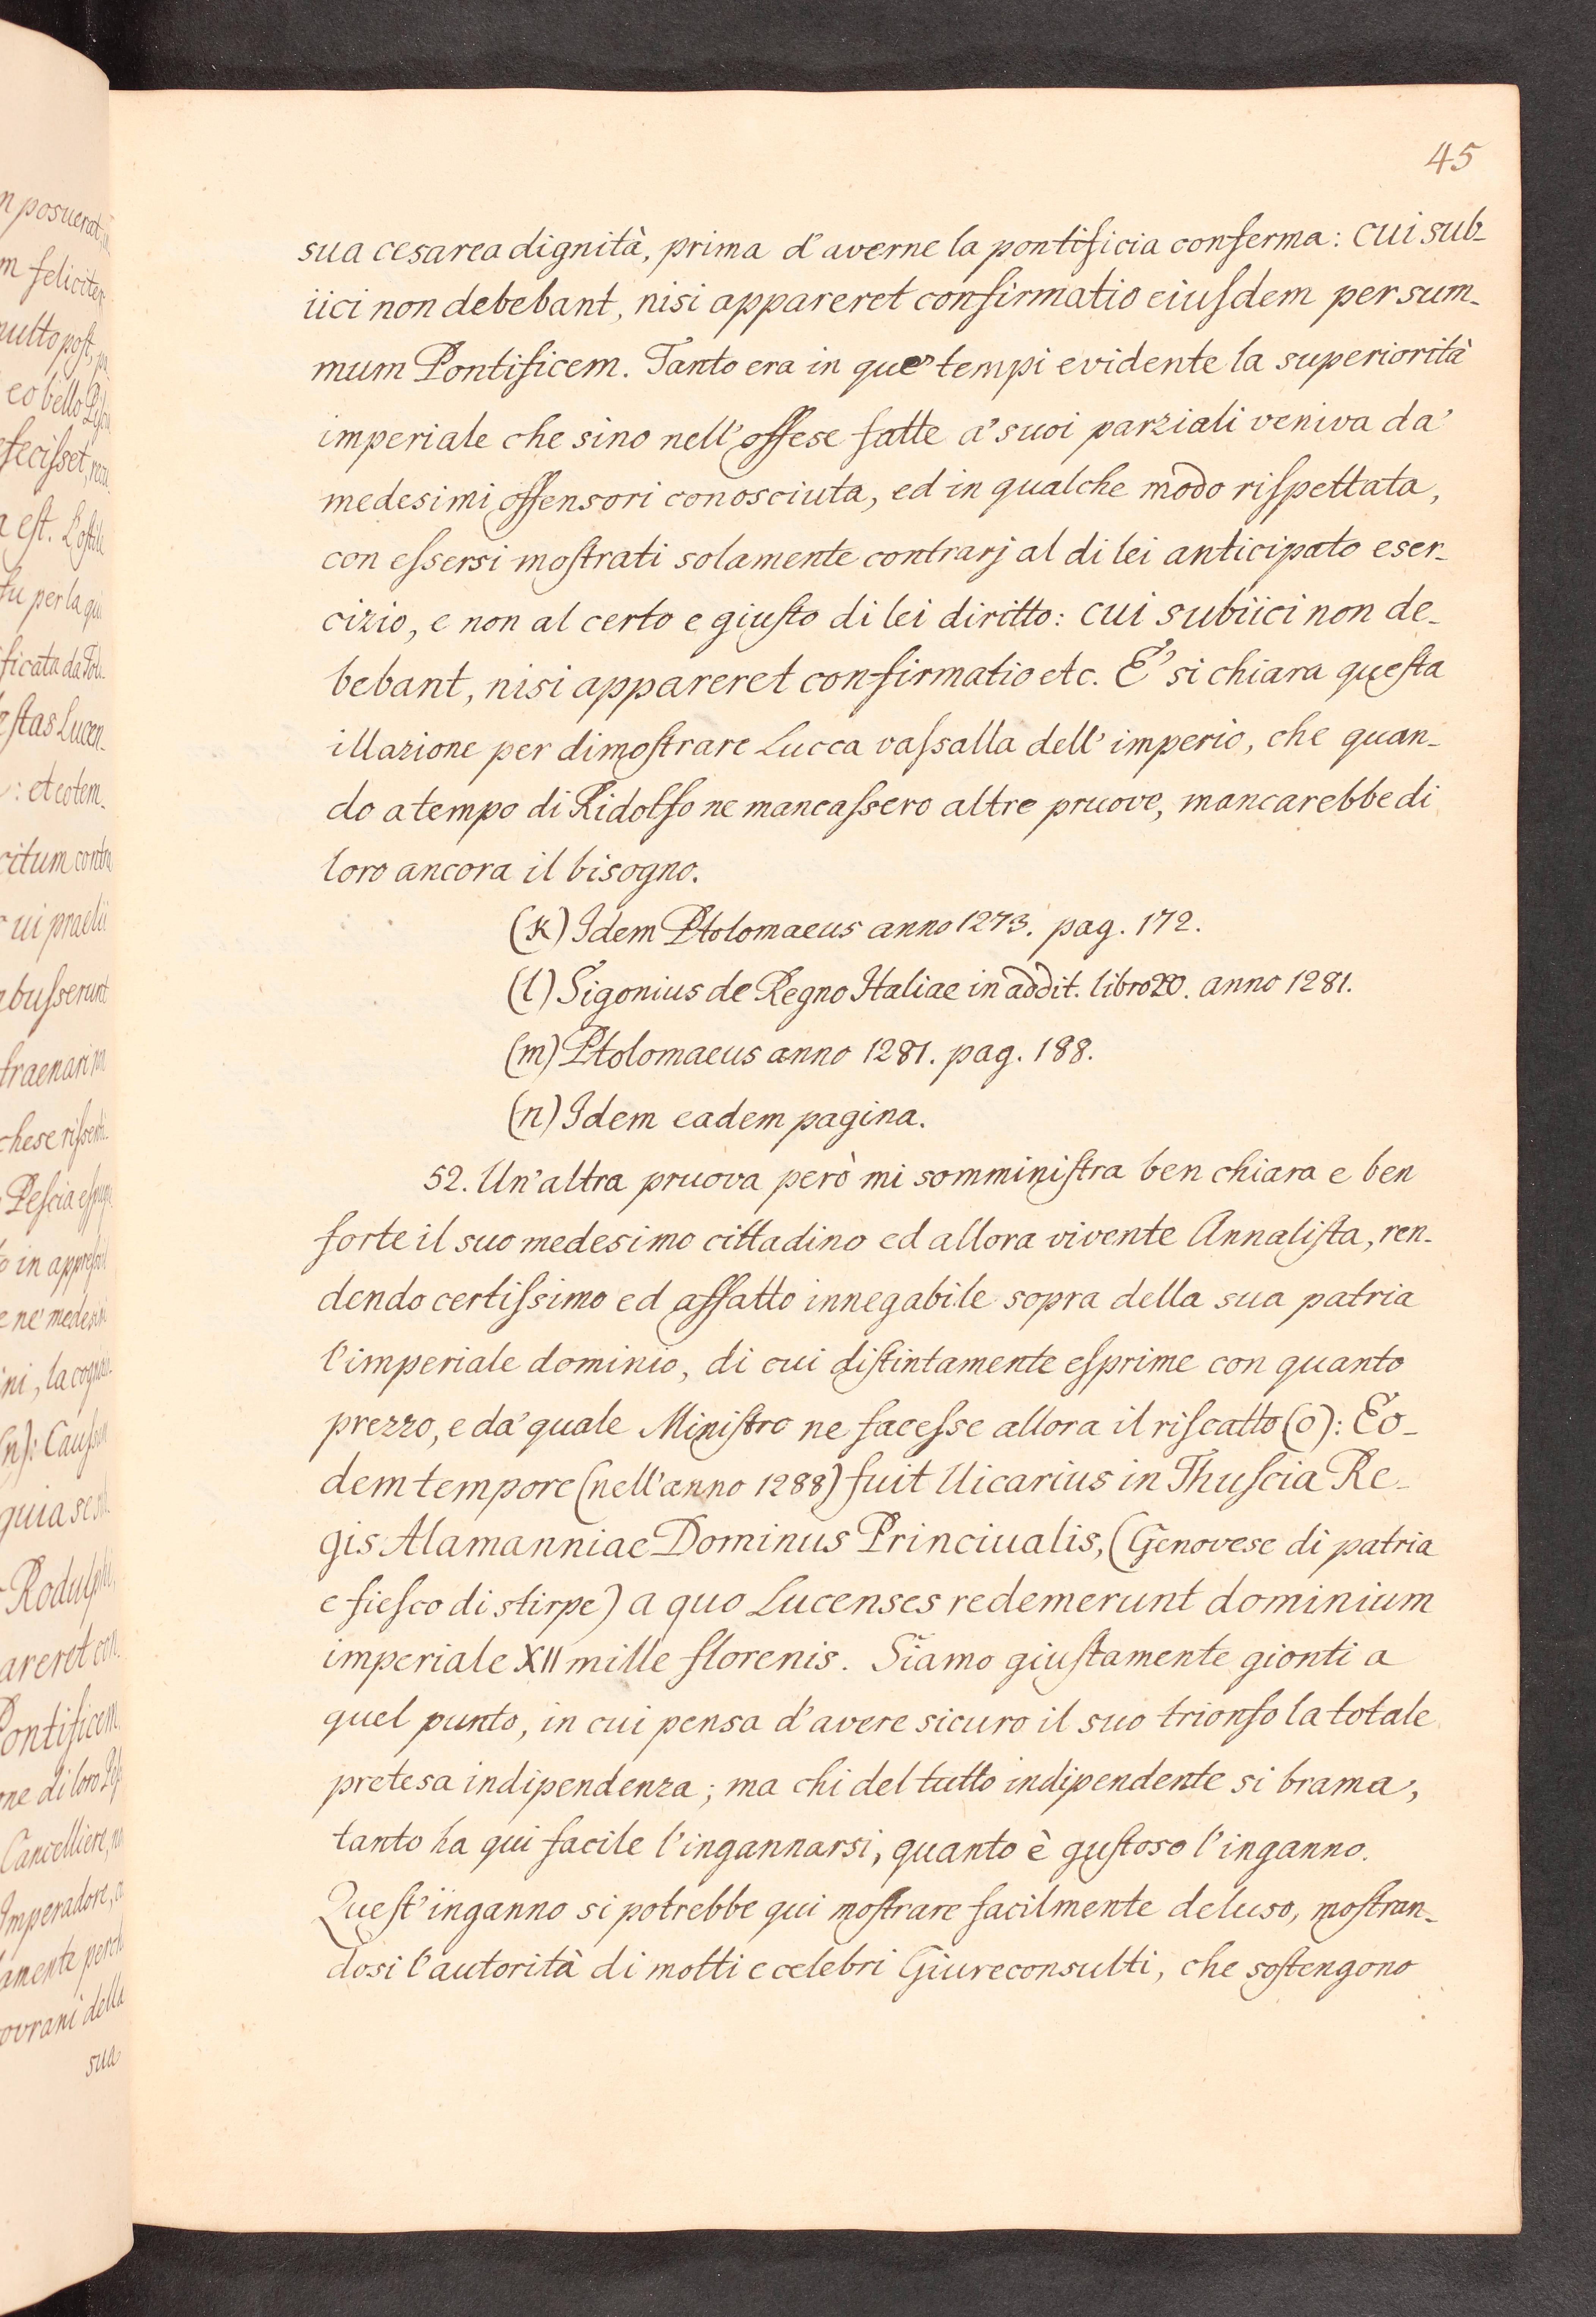 45
sua cesarea dignità, prima d'averne la pontificia conferma: cui sub-
iici non debebant, nisi appareret confirmatio eiusdem per sum-
mum Pontificem. Tanto era in que' tempi evidente la superiorità
imperiale che sino nell'offese fatte a' suoi parziali veniva da'
medesimi offensori conosciuta, ed in qualche modo rispettata,
con essersi mostrati solamente contrarj al di lei anticipato eser-
cizio, e non al certo e giusto di lei diritto: cui subiici non de-
bebant, nisi appareret confirmatio etc. E' si chiara questa
illazione per dimostrare Lucca vassalla dell'imperio, che quan-
do a tempo di Ridolfo ne mancassero altre pruove, mancarebbe di
loro ancora il bisogno.
(k) Idem Ptolomaeus anno 1273. pag. 172.
(l) Sigonius de Regno Italiae in addit. libro 20. anno 1281.
(m) Ptolomaeus anno 1281. pag. 188.
(n) Idem eadem pagina.
52. Un'altra pruova però mi somministra ben chiara e ben
forte il suo medesimo cittadino ed allora vivente Annalista, ren-
dendo certissimo ed affatto innegabile sopra della sua patria
l'imperiale dominio, di cui distintamente esprime con quanto
prezzo, e da' quale Ministro ne facesse allora il riscatto (o): Eo-
dem tempore (nell'anno 1288) fuit Uicarius in Thuscia Re-
gis Alamanniae Dominus Princiualis, (Genovese di patria
e fiesco di stirpe) a quo Lucenses redemerunt dominium
imperiale XII mille florenis. Siamo giustamente gionti a
quel punto, in cui pensa d'avere sicuro il suo trionfo la totale
pretesa indipendenza; ma chi del tutto indipendente si brama,
tanto ha qui facile l'ingannarsi, quanto è gustoso l'inganno.
Quest'inganno si potrebbe qui mostrare facilmente deluso, mostran-
dosi l'autorità di molti e celebri Giureconsulti, che sostengono